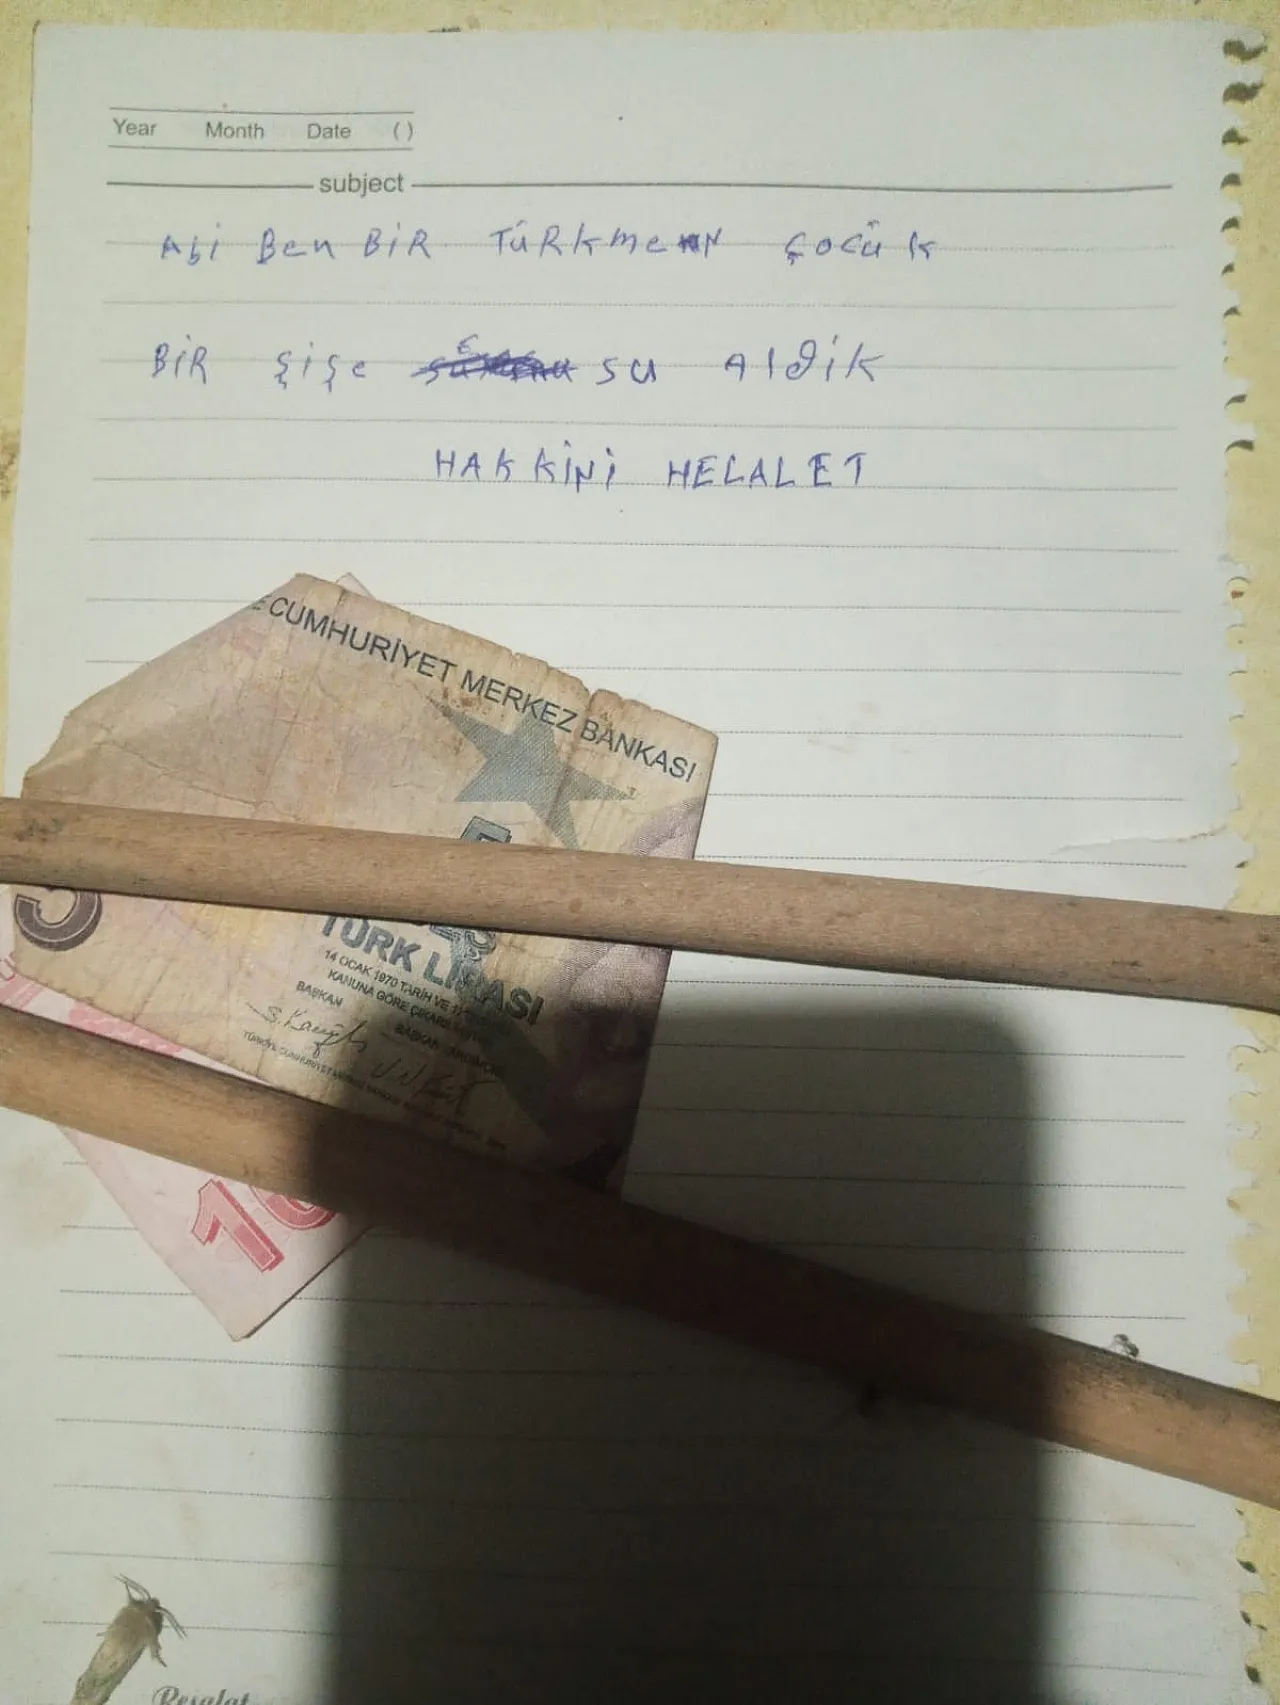 Year Month Date ( )
subject
Abi Ben BİR TüRkmeN çocük
BİR şişe su Aldik
HAKKİNİ HELALET
CUMHURİYET MERKEZ BANKASI
5
TÜRK LİRASI
14 OCAK 1970 TARİH VE
KANUNA GÖRE
BAŞKAN
10
Resalat